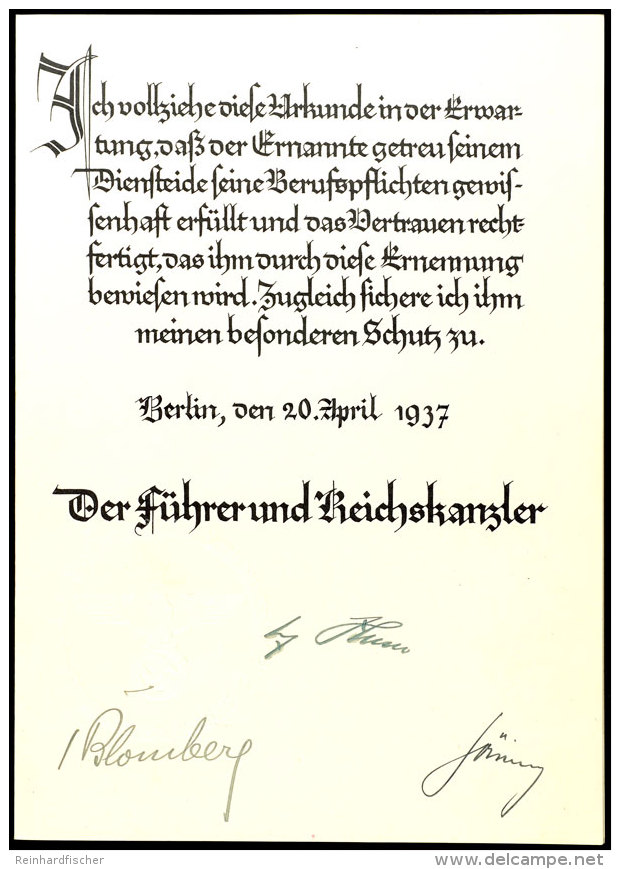 Ich vollziehe diese Urkunde in der Erwar-
tung, daß der Ernannte getreu seinem
Diensteide seine Berufspflichten gewis-
senhaft erfüllt und das Vertrauen recht-
fertigt, das ihm durch diese Ernennung
bewiesen wird. Zugleich sichere ich ihm
meinen besonderen Schutz zu.
Berlin, den 20. April 1937
Der Führer und Reichskanzler
Blomberg
Göring
Reinhardfischer
www.delcampe.net